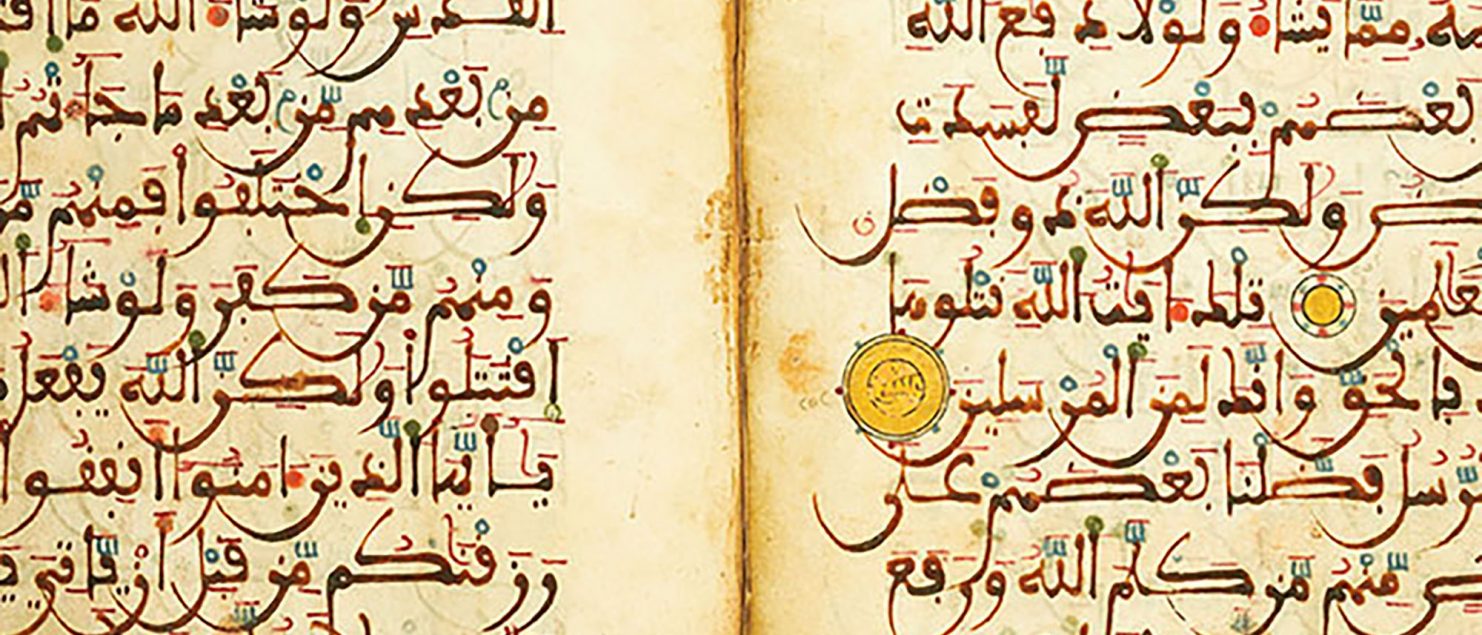 مِمَّا يَشَاءُ وَلَوْلَا دَفْعُ اللَّهِ
بَعْضَهُم بِبَعْضٍ لَّفَسَدَتِ
وَلَٰكِنَّ اللَّهَ ذُو فَضْلٍ
الْعَالَمِينَ تِلْكَ ءَايَٰتُ اللَّهِ نَتْلُوهَا
بِالْحَقِّ وَإِنَّكَ لَمِنَ الْمُرْسَلِينَ
الرُّسُلُ فَضَّلْنَا بَعْضَهُمْ عَلَىٰ
مِّنْهُم مَّن كَلَّمَ اللَّهُ وَرَفَعَ
الْقُدُسِ وَلَوْ شَاءَ اللَّهُ مَا
مِن بَعْدِهِم مِّن بَعْدِ مَا جَاءَتْهُمُ
وَلَٰكِنِ اخْتَلَفُوا فَمِنْهُم مَّنْ
وَمِنْهُم مَّن كَفَرَ وَلَوْ شَاءَ
اقْتَتَلُوا وَلَٰكِنَّ اللَّهَ يَفْعَلُ
يَٰأَيُّهَا الَّذِينَ ءَامَنُوا أَنفِقُوا
رَزَقْنَٰكُم مِّن قَبْلِ أَن يَأْتِيَ